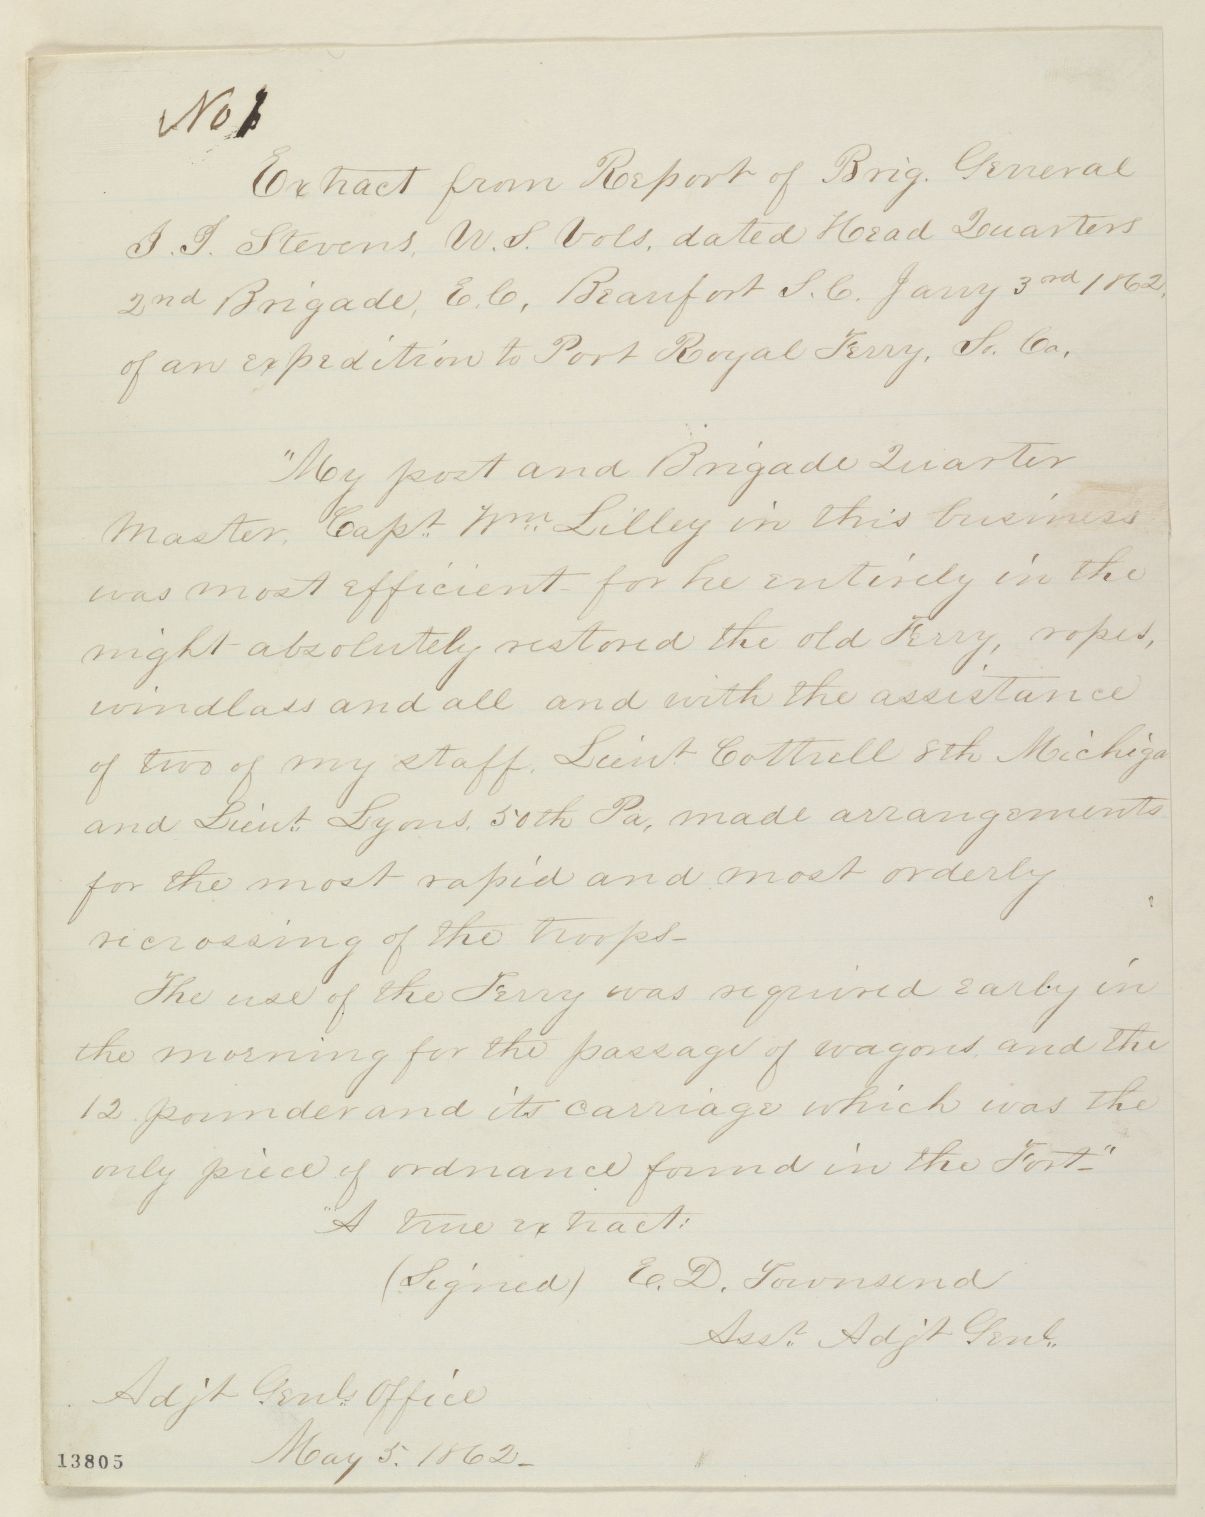 No 1
Extract from Report of Brig. General
I. I. Stevens, U.S. Vols, dated Head Quarters
2nd Brigade, E.C, Beaufort S.C. Jany 3rd 1862,
of an expedition to Port Royal Ferry, So. Ca,
"My post and Brigade Quarter
Master, Capt. Wm. Lilley in this business
was most efficient - for he entirely in the
night absolutely restored the old Ferry, ropes,
windlass and all and with the assistance
of two of my staff, Lieut Cottrell 8th Michiga
and Lieut. Lyons, 50th Pa, made arrangements
for the most rapid and most orderly
recrossing of the troops-
The use of the Ferry was required early in
the morning for the passage of wagons and the
12 pounder and its carriage which was the
only piece of ordnance found in the Fort-"
"A true extract:
(Signed) E. D. Townsend
Asst. Adjt Genl.
Adjt Genls. Office
May 5. 1862-
13805